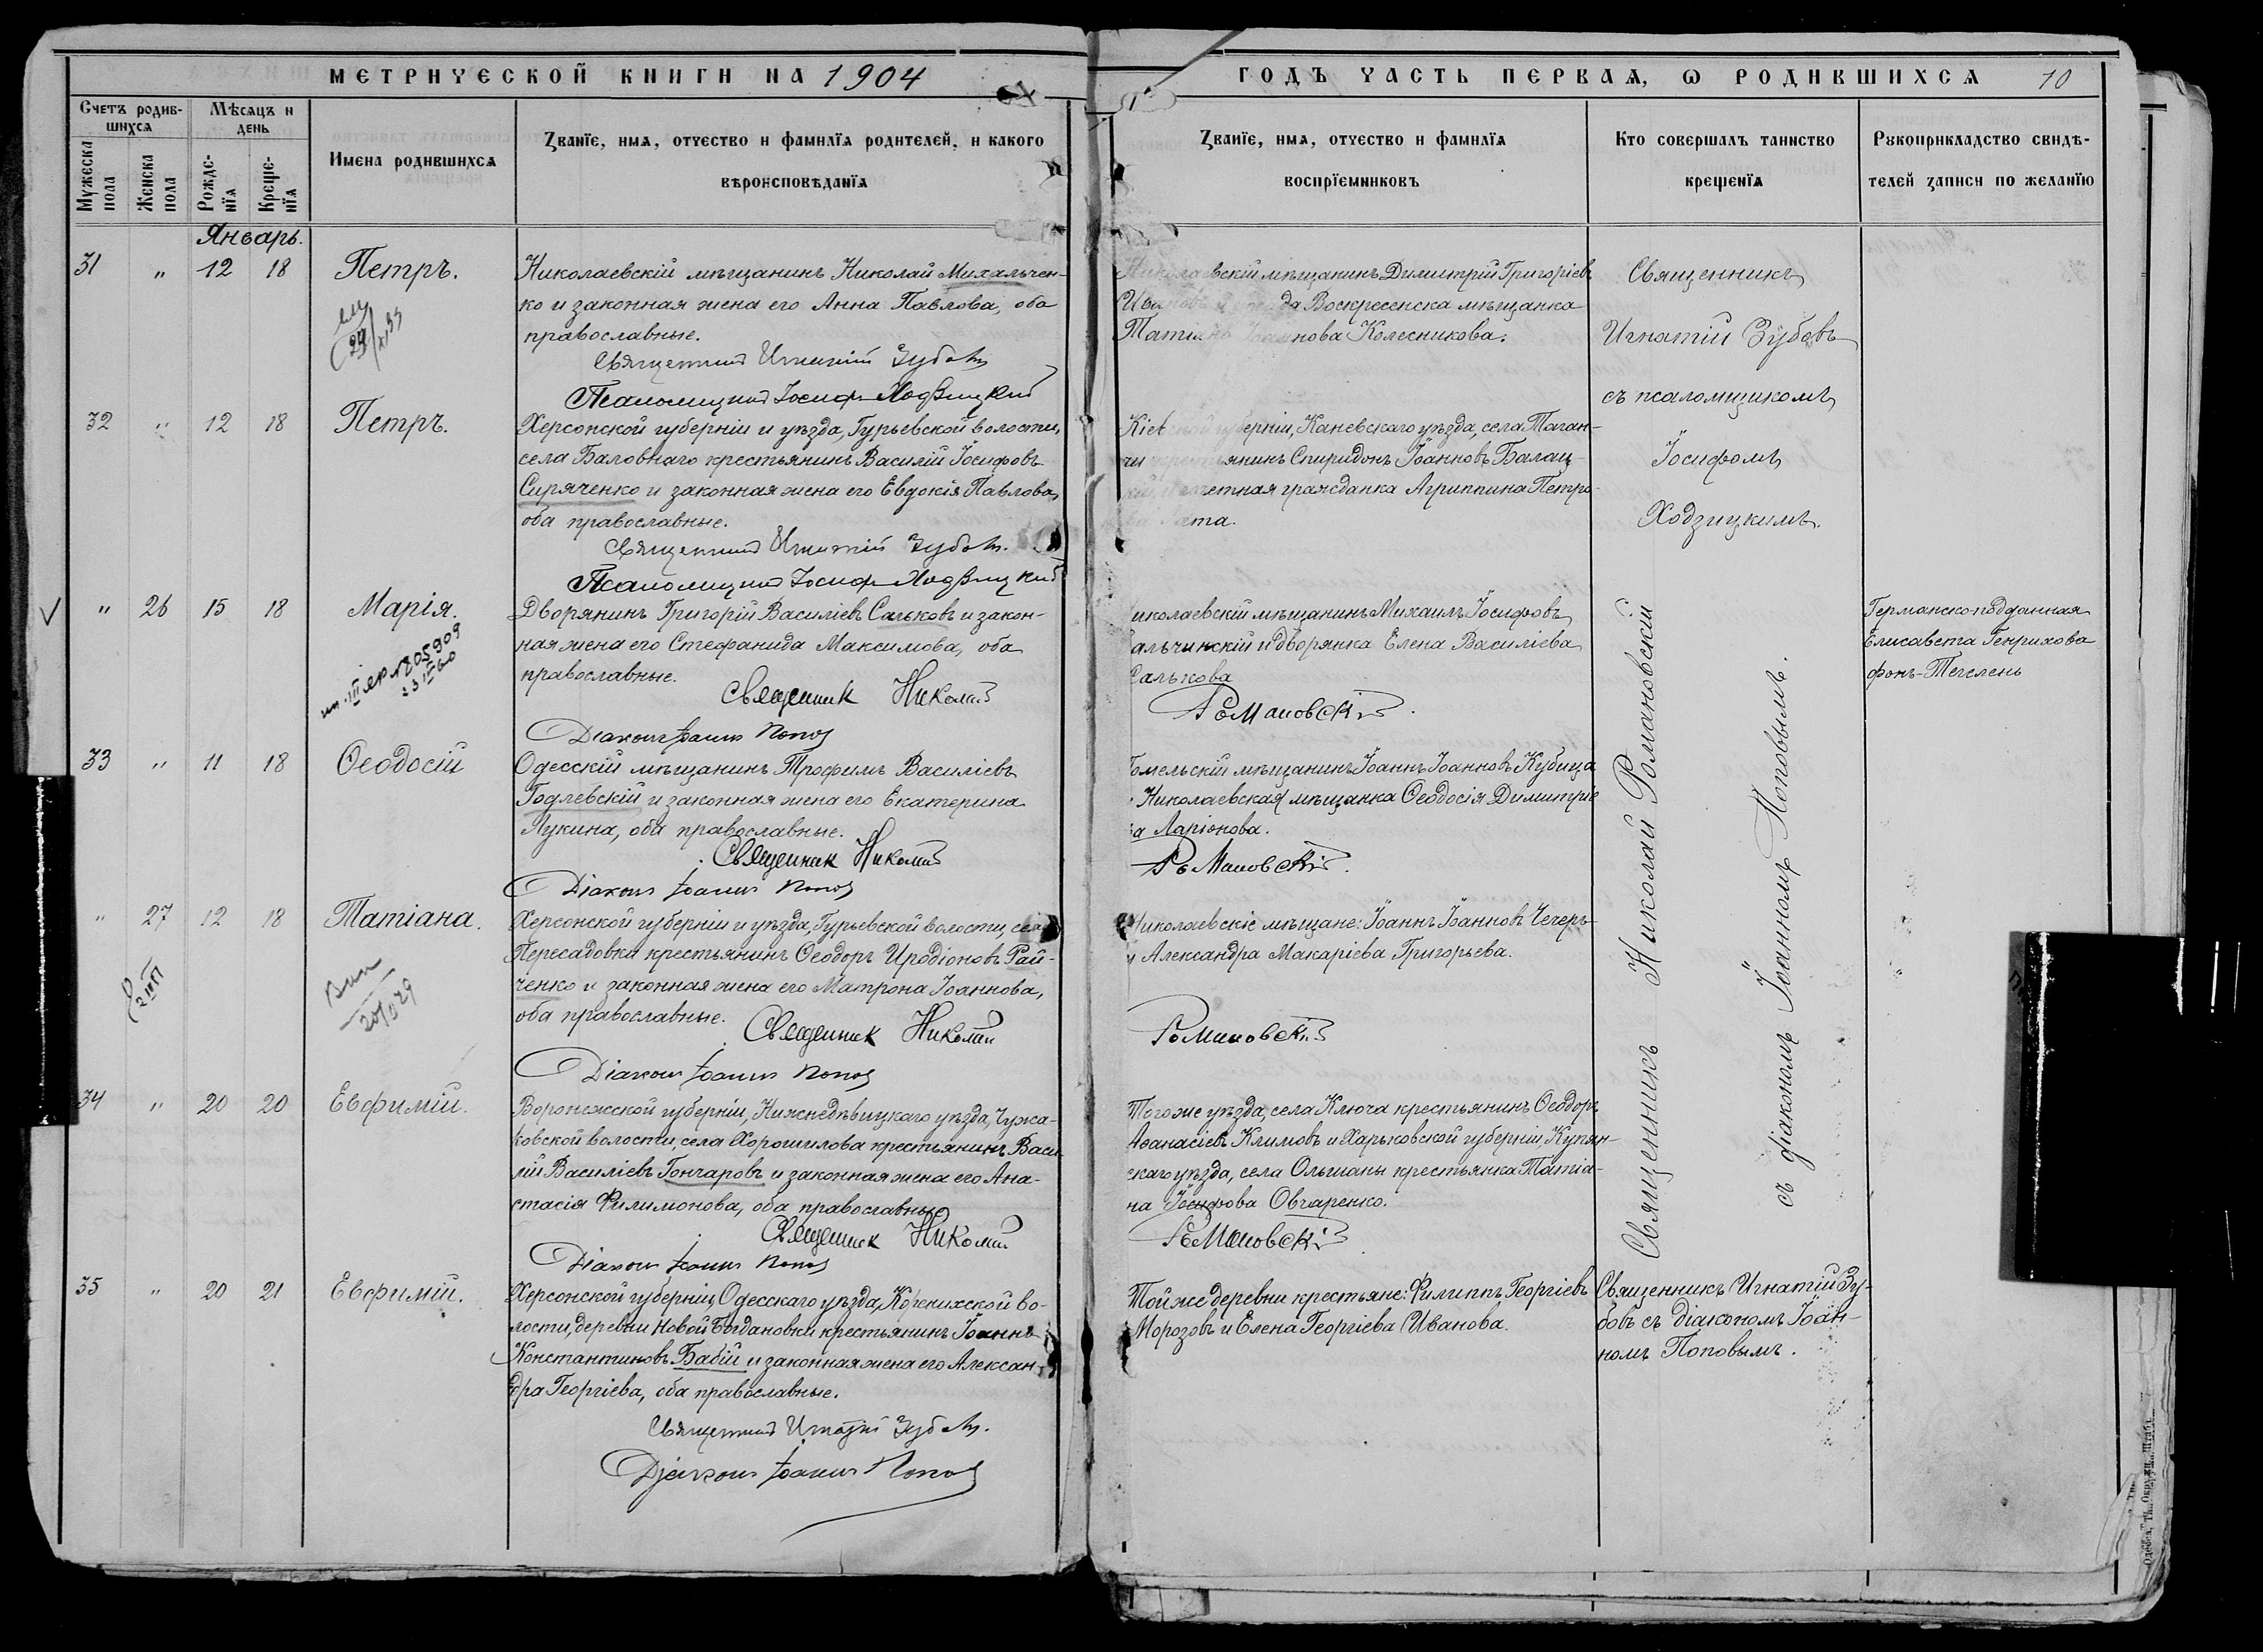 МЕТРИЧЕСКОЙ КНИГИ НА 1904
Счетъ родив-
шихся
Мѣсяцъ и
день
Мужеска
пола
Женска
пола
Рожде-
нїя
Креще-
нїя
Имена родившихся
Званїе, имя, отчество и фамилїя родителей, и какого
вѣроисповѣданїя
Январь.
31 " 12 18 Петръ.
Николаевскій мѣщанинъ Николай Михальчен-
ко и законная жена его Анна Павлова, оба
православные.
Священникъ Игнатій Зубовъ
Псаломщикъ Іосифъ Ходзицкій
32 " 12 18 Петръ.
Херсонской губерніи и уѣзда, Гурьевской волости,
села Баловнаго крестьянинъ Василій Іосифовъ
Сиряченко и законная жена его Евдокія Павлова,
оба православные.
Священникъ Игнатій Зубовъ.
Псаломщикъ Іосифъ Ходзицкій
" 26 15 18 Марія.
Дворянинъ Григорій Василіевъ Сальковъ и закон-
ная жена его Стефанида Максимова, оба
православные.
Священникъ Николай
Діаконъ Іоаннъ Поповъ
33 " 11 18 Ѳеодосій
Одесскій мѣщанинъ Трофимъ Василіевъ
Годлевскій и законная жена его Екатерина
Лукина, оба православные.
Священникъ Николай
Діаконъ Іоаннъ Поповъ
" 27 12 18 Татіана.
Херсонской губерніи и уѣзда, Гурьевской волости, села
Пересадовки крестьянинъ Ѳеодоръ Иродіоновъ Рай-
ченко и законная жена его Матрона Іоаннова,
оба православные.
Священникъ Николай
Діаконъ Іоаннъ Поповъ
34 " 20 20 Евфимій.
Воронежской губерніи, Нижнедѣвицкаго уѣзда, Чужа-
ковской волости, села Хорошилова крестьянинъ Васи-
лій Василіевъ Гончаровъ и законная жена его Ана-
стасія Филимонова, оба православные
Священникъ Николай
Діаконъ Іоаннъ Поповъ
35 " 20 21 Евфимій.
Херсонской губерніи, Одесскаго уѣзда, Коренихской во-
лости, деревни Новой Богдановки крестьянинъ Іоаннъ
Константиновъ Бабій и законная жена его Алексан-
дра Георгіева, оба православные.
Священникъ Игнатій Зубовъ.
Діаконъ Іоаннъ Поповъ
ГОДЪ ЧАСТЬ ПЕРВАЯ, Ѡ РОДИВШИХСЯ 10
Званїе, имя, отчество и фамилїя
воспрїемниковъ
Кто совершалъ таинство
крещенїя
Рꙋкоприкладство свидѣ-
телей записи по желанїю
Николаевскій мѣщанинъ Димитрій Григоріевъ
да Воскресенска мѣщанка
Колесникова.
губерніи, Каневскаго уѣзда, села Таган-
чи крестьянинъ Спиридонъ Іоанновъ Балац-
почетная гражданка Агриппина Петро-
иколаевскій мѣщанинъ Михаилъ Іосифовъ
альчинскій и дворянка Елена Василіева
Салькова
Романовскій.
Гомельскій мѣщанинъ Іоаннъ Іоанновъ Кубица
Николаевская мѣщанка Ѳеодосія Димитріе
ва Ларіонова.
Романовскій.
Николаевскіе мѣщане: Іоаннъ Іоанновъ Чечеръ
и Александра Макаріева Григорьева.
Романовскій
Того же уѣзда, села Ключа крестьянинъ Ѳеодоръ
Аѳанасіевъ Климовъ и Харьковской губерніи, Купян-
скаго уѣзда, села Ольшаны крестьянка Татіа-
на Іосифова Овчаренко.
Романовскій
Той же деревни крестьяне: Филиппъ Георгіевъ
Морозовъ и Елена Георгіева Иванова.
Священникъ
Игнатій Зубовъ
съ псаломщикомъ
Іосифомъ
Ходзицкимъ.
Священникъ Николай Романовскій
съ діакономъ Іоанномъ Поповымъ.
Священникъ Игнатій Зу-
бовъ съ діакономъ Іоан-
номъ Поповымъ.
Германско-подданная
Елисавета Генрихова
фонъ-Тегелень